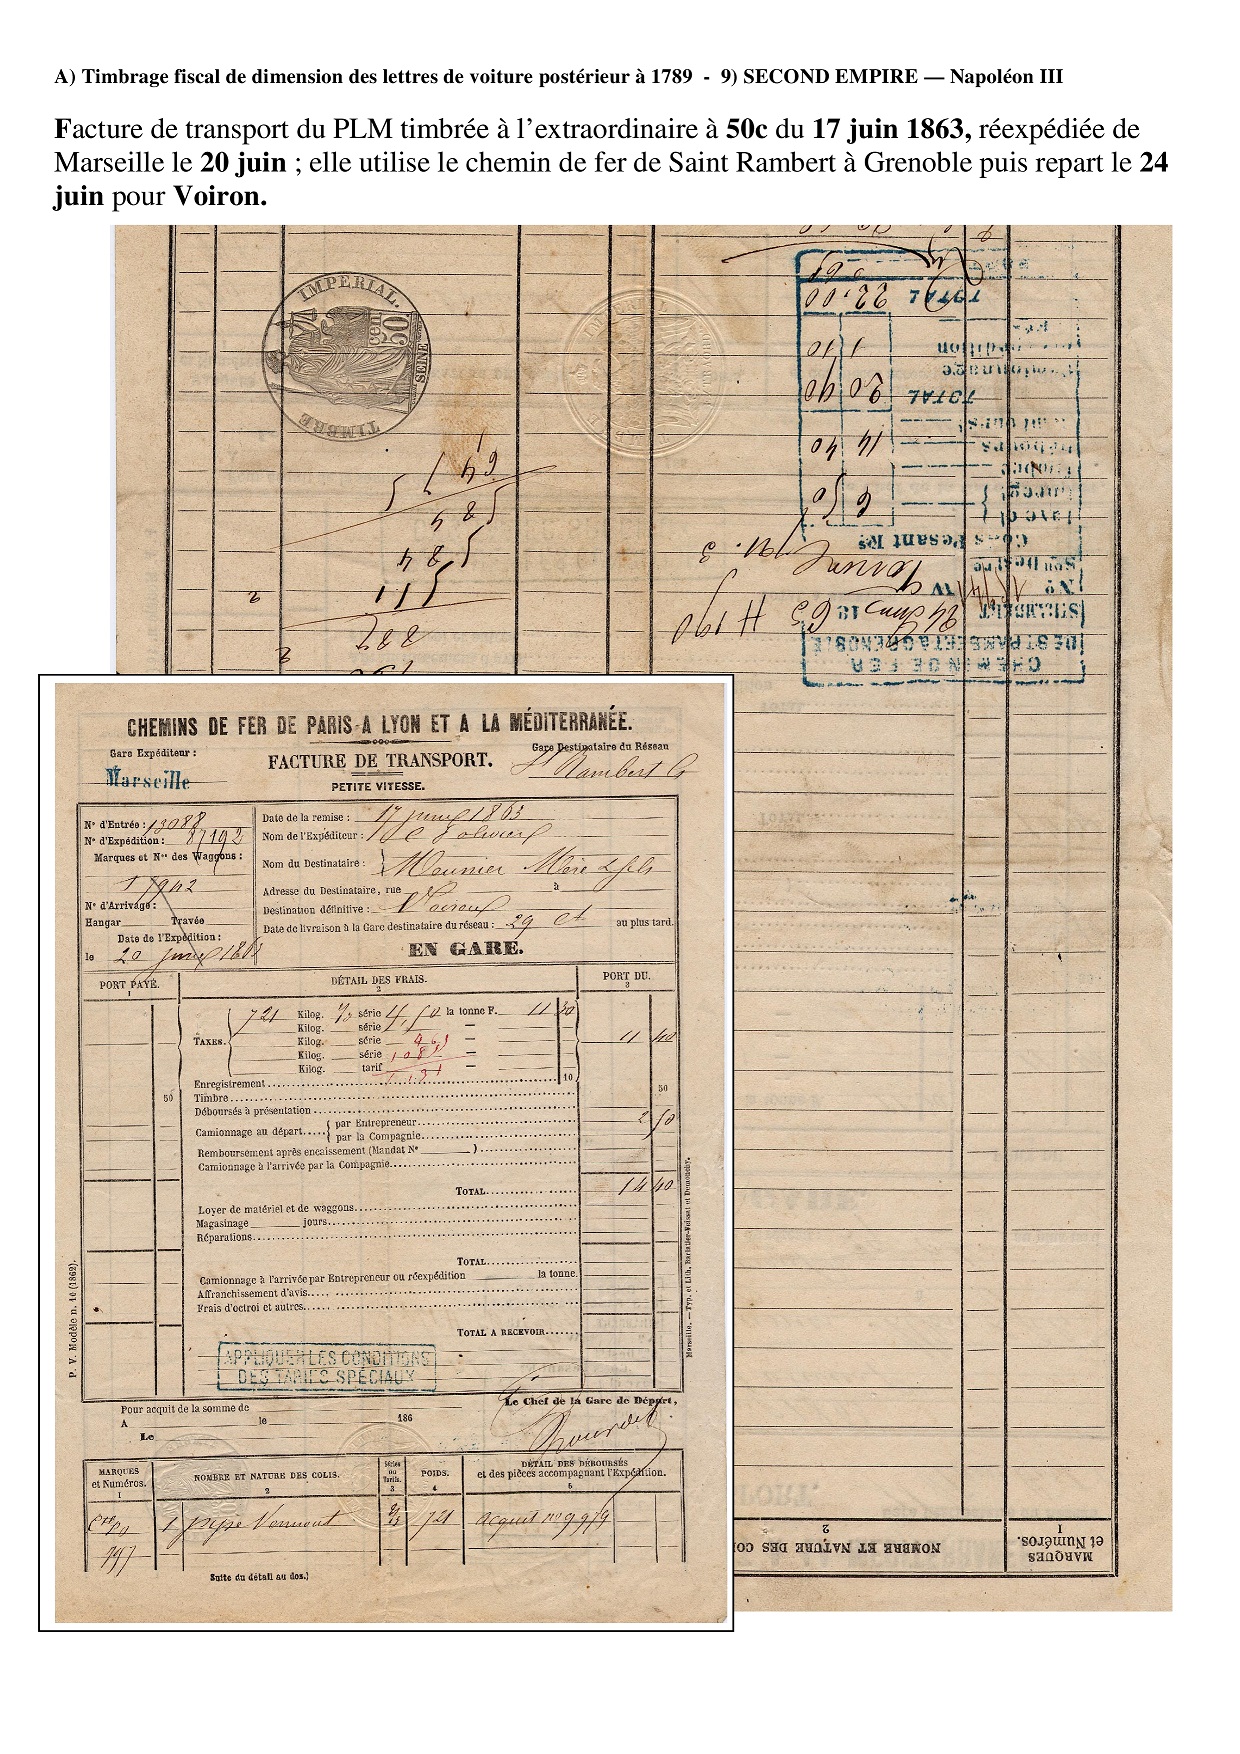 A) Timbrage fiscal de dimension des lettres de voiture postérieur à 1789 - 9) SECOND EMPIRE — Napoléon III
Facture de transport du PLM timbrée à l’extraordinaire à 50c du 17 juin 1863, réexpédiée de
Marseille le 20 juin ; elle utilise le chemin de fer de Saint Rambert à Grenoble puis repart le 24
juin pour Voiron.
TIMBRE IMPERIAL.
50 cent
SEINE
CHEMIN DE FER
DE ST RAMBERT A GRENOBLE
ST RAMBERT 24 juin 1863
No
Son Destre
Colis Pesant Ks
6 50
14 40
TOTAL 20 90
1 10
TOTAL 22,00
H 190
MARQUES
et Numéros.
1
NOMBRE ET NATURE DES CO
2
CHEMINS DE FER DE PARIS A LYON ET A LA MÉDITERRANÉE.
Gare Expéditeur :
Marseille
FACTURE DE TRANSPORT.
PETITE VITESSE.
Gare Destinataire du Réseau
St Rambert G
No d'Entrée : 13088
No d'Expédition : 87192
Marques et Nos des Waggons :
No d'Arrivage :
Hangar Travée
Date de l'Expédition :
le 20 juin 1863
Date de la remise : 17 juin 1863
Nom de l'Expéditeur :
Nom du Destinataire : Meunier Mère & fils
Adresse du Destinataire, rue à
Destination définitive : Voiron
Date de livraison à la Gare destinataire du réseau : 29 ct au plus tard.
EN GARE.
PORT PAYÉ.
1
DÉTAIL DES FRAIS.
2
PORT DU.
3
TAXES.
721 Kilog. série 4,50 la tonne F. 11 30
Kilog. série —
Kilog. série —
Kilog. série —
Kilog. tarif —
11 40
Enregistrement 10
50 Timbre 50
Déboursés à présentation
Camionnage au départ { par Entrepreneur 2 50
par la Compagnie
Remboursement après encaissement (Mandat No )
Camionnage à l'arrivée par la Compagnie
TOTAL 14 40
Loyer de matériel et de waggons
Magasinage jours
Réparations
TOTAL
Camionnage à l'arrivée par Entrepreneur ou réexpédition la tonne.
Affranchissement d'avis
Frais d'octroi et autres
TOTAL A RECEVOIR
APPLIQUER LES CONDITIONS
DES TARIFS SPÉCIAUX
P. V. Modèle n. 10 (1862).
Marseille. — Typ. et Lith. Barlatier-Feissat et Demonchy.
Pour acquit de la somme de
A le 186
Le
Le Chef de la Gare de Départ,
MARQUES
et Numéros.
1
NOMBRE ET NATURE DES COLIS.
2
Séries
ou
Tarifs.
3
POIDS.
4
DÉTAIL DES DÉBOURSÉS
et des pièces accompagnant l'Expédition.
5
1 pipe Vermout 721 acquit no 9979
797
Suite du détail au dos.)